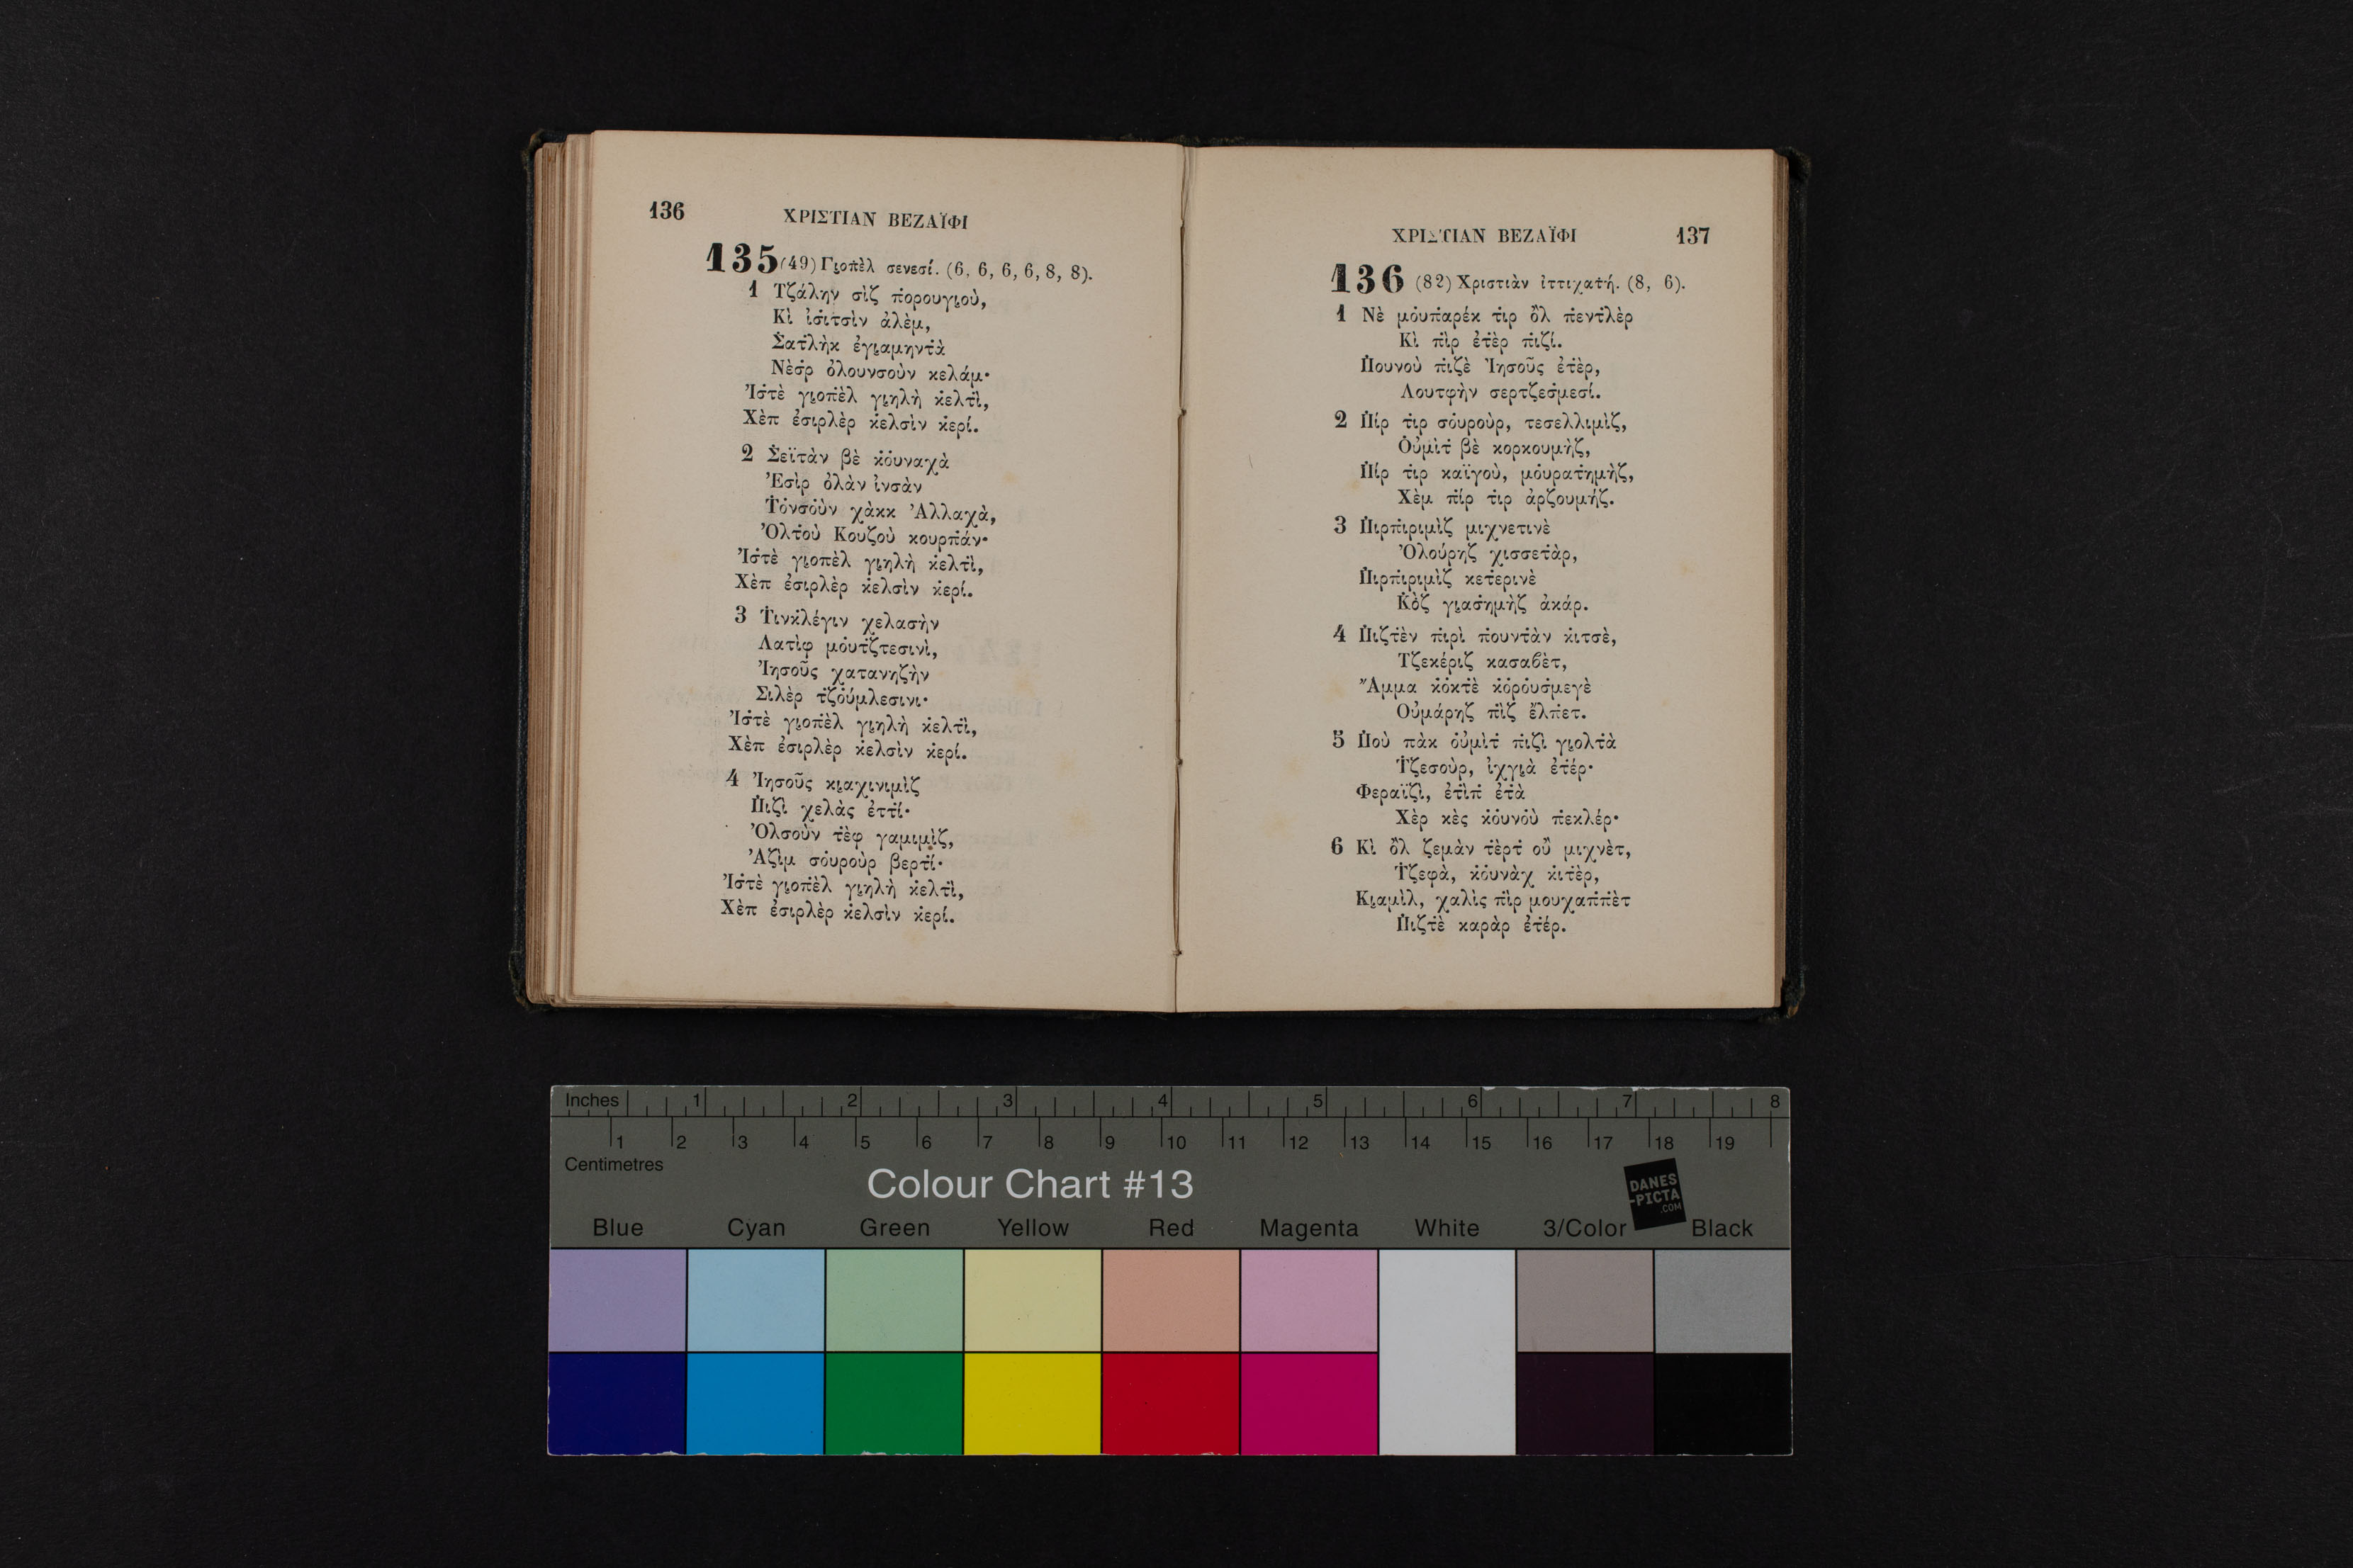 136
ΧΡΙΣΤΙΑΝ ΒΕΖΑΪΦΙ
135 (49) Γιοπὲλ σενεσί. (6, 6, 6, 6, 8, 8).
1 Τζάλην σὶζ πορουγιοὺ,
Κὶ ἰσιτσὶν ἀλὲμ,
Σ̇ατλὴκ ἐγιαμηντὰ
Νὲσ̇ρ ὀλουνσοὺν κελάμ·
Ἰσ̇τὲ γιοπὲλ γιηλὴ κ̇ελτὶ,
Χὲπ ἐσιρλὲρ κ̇ελσὶν κ̇ερί.
2 Σ̇εϊτὰν βὲ κ̇ο̇υναχὰ
Ἐσὶρ ὀλὰν ἰνσὰν
Τ̇ο̇νσο̇ὺν χὰκκ Ἀλλαχὰ,
Ὀλτ̇οὺ Κουζοὺ κουρπ̇άν·
Ἰσ̇τὲ γιοπὲλ γιηλὴ κ̇ελτὶ,
Χὲπ ἐσιρλὲρ κ̇ελσὶν κ̇ερί.
3 Τ̇ινκλέγιν χελασὴν
Λατὶφ μο̇υτ̇ζτεσινὶ,
Ἰησοῦς χατανηζὴν
Σιλὲρ τ̇ζο̇ύμλεσινι·
Ἰσ̇τὲ γιοπὲλ γιηλὴ κ̇ελτὶ,
Χὲπ ἐσιρλὲρ κ̇ελσὶν κ̇ερί.
4 Ἰησοῦς κιαχινιμὶζ
Π̇ιζὶ χελὰς ἐττί·
Ὀλσοὺν τ̇ὲφ γαμιμὶζ,
Ἀζὶμ σο̇υροὺρ βερτ̇ί·
Ἰσ̇τὲ γιοπὲλ γιηλὴ κ̇ελτὶ,
Χὲπ ἐσιρλὲρ κ̇ελσὶν κ̇ερί.
ΧΡΙΣΤΙΑΝ ΒΕΖΑΪΦΙ
137
136 (82) Χριστιὰν ἰττιχατ̇ή. (8, 6).
1 Νὲ μο̇υπ̇αρέκ τ̇ιρ ὂλ π̇εντ̇λὲρ
Κὶ π̇ὶρ ἐτ̇ὲρ π̇ιζί.
Π̇ουνοὺ π̇ιζὲ Ἰησοῦς ἐτ̇ὲρ,
Λουτφὴν σερτζεσ̇μεσί.
2 Π̇ίρ τ̇ιρ σο̇υροὺρ, τεσελλιμὶζ,
Ο̇ὐμὶτ̇ βὲ κορκουμὴζ,
Π̇ίρ τ̇ιρ καϊγοὺ, μο̇υρατ̇ημὴζ,
Χὲμ π̇ίρ τ̇ιρ ἀρζουμήζ.
3 Π̇ιρπ̇ιριμὶζ μιχνετινὲ
Ὀλούρηζ χισσετ̇ὰρ,
Π̇ιρπ̇ιριμὶζ κετ̇ερινὲ
Κ̇ο̇ζ γιασ̇ημὴζ ἀκάρ.
4 Π̇ιζτ̇ὲν π̇ιρὶ π̇ουντ̇ὰν κ̇ιτσὲ,
Τζεκέριζ κασαϐὲτ,
Ἄμμα κ̇ο̇κτ̇ὲ κ̇ο̇ρο̇υσ̇μεγὲ
Οὐμάρηζ π̇ὶζ ἔλπ̇ετ.
5 Π̇οὺ πὰκ ο̇ὐμὶτ̇ π̇ιζὶ γιολτ̇ὰ
Τ̇ζεσοὺρ, ἰχγιὰ ἐτ̇έρ·
Φεραϊζὶ, ἐτ̇ὶπ̇ ἐτ̇ὰ
Χὲρ κὲς κ̇ο̇υνο̇ὺ π̇εκλέρ·
6 Κὶ ὂλ ζεμὰν τ̇ὲρτ̇ οὒ μιχνὲτ,
Τ̇ζεφὰ, κ̇ο̇υνὰχ κ̇ιτ̇ὲρ,
Κιαμὶλ, χαλὶς π̇ὶρ μουχαπ̇π̇ὲτ
Π̇ιζτ̇ὲ καρὰρ ἐτ̇έρ.
Inches 1 2 3 4 5 6 7 8
1 2 3 4 5 6 7 8 9 10 11 12 13 14 15 16 17 18 19
Centimetres
Colour Chart #13
DANES
-PICTA
.COM
Blue Cyan Green Yellow Red Magenta White 3/Color Black